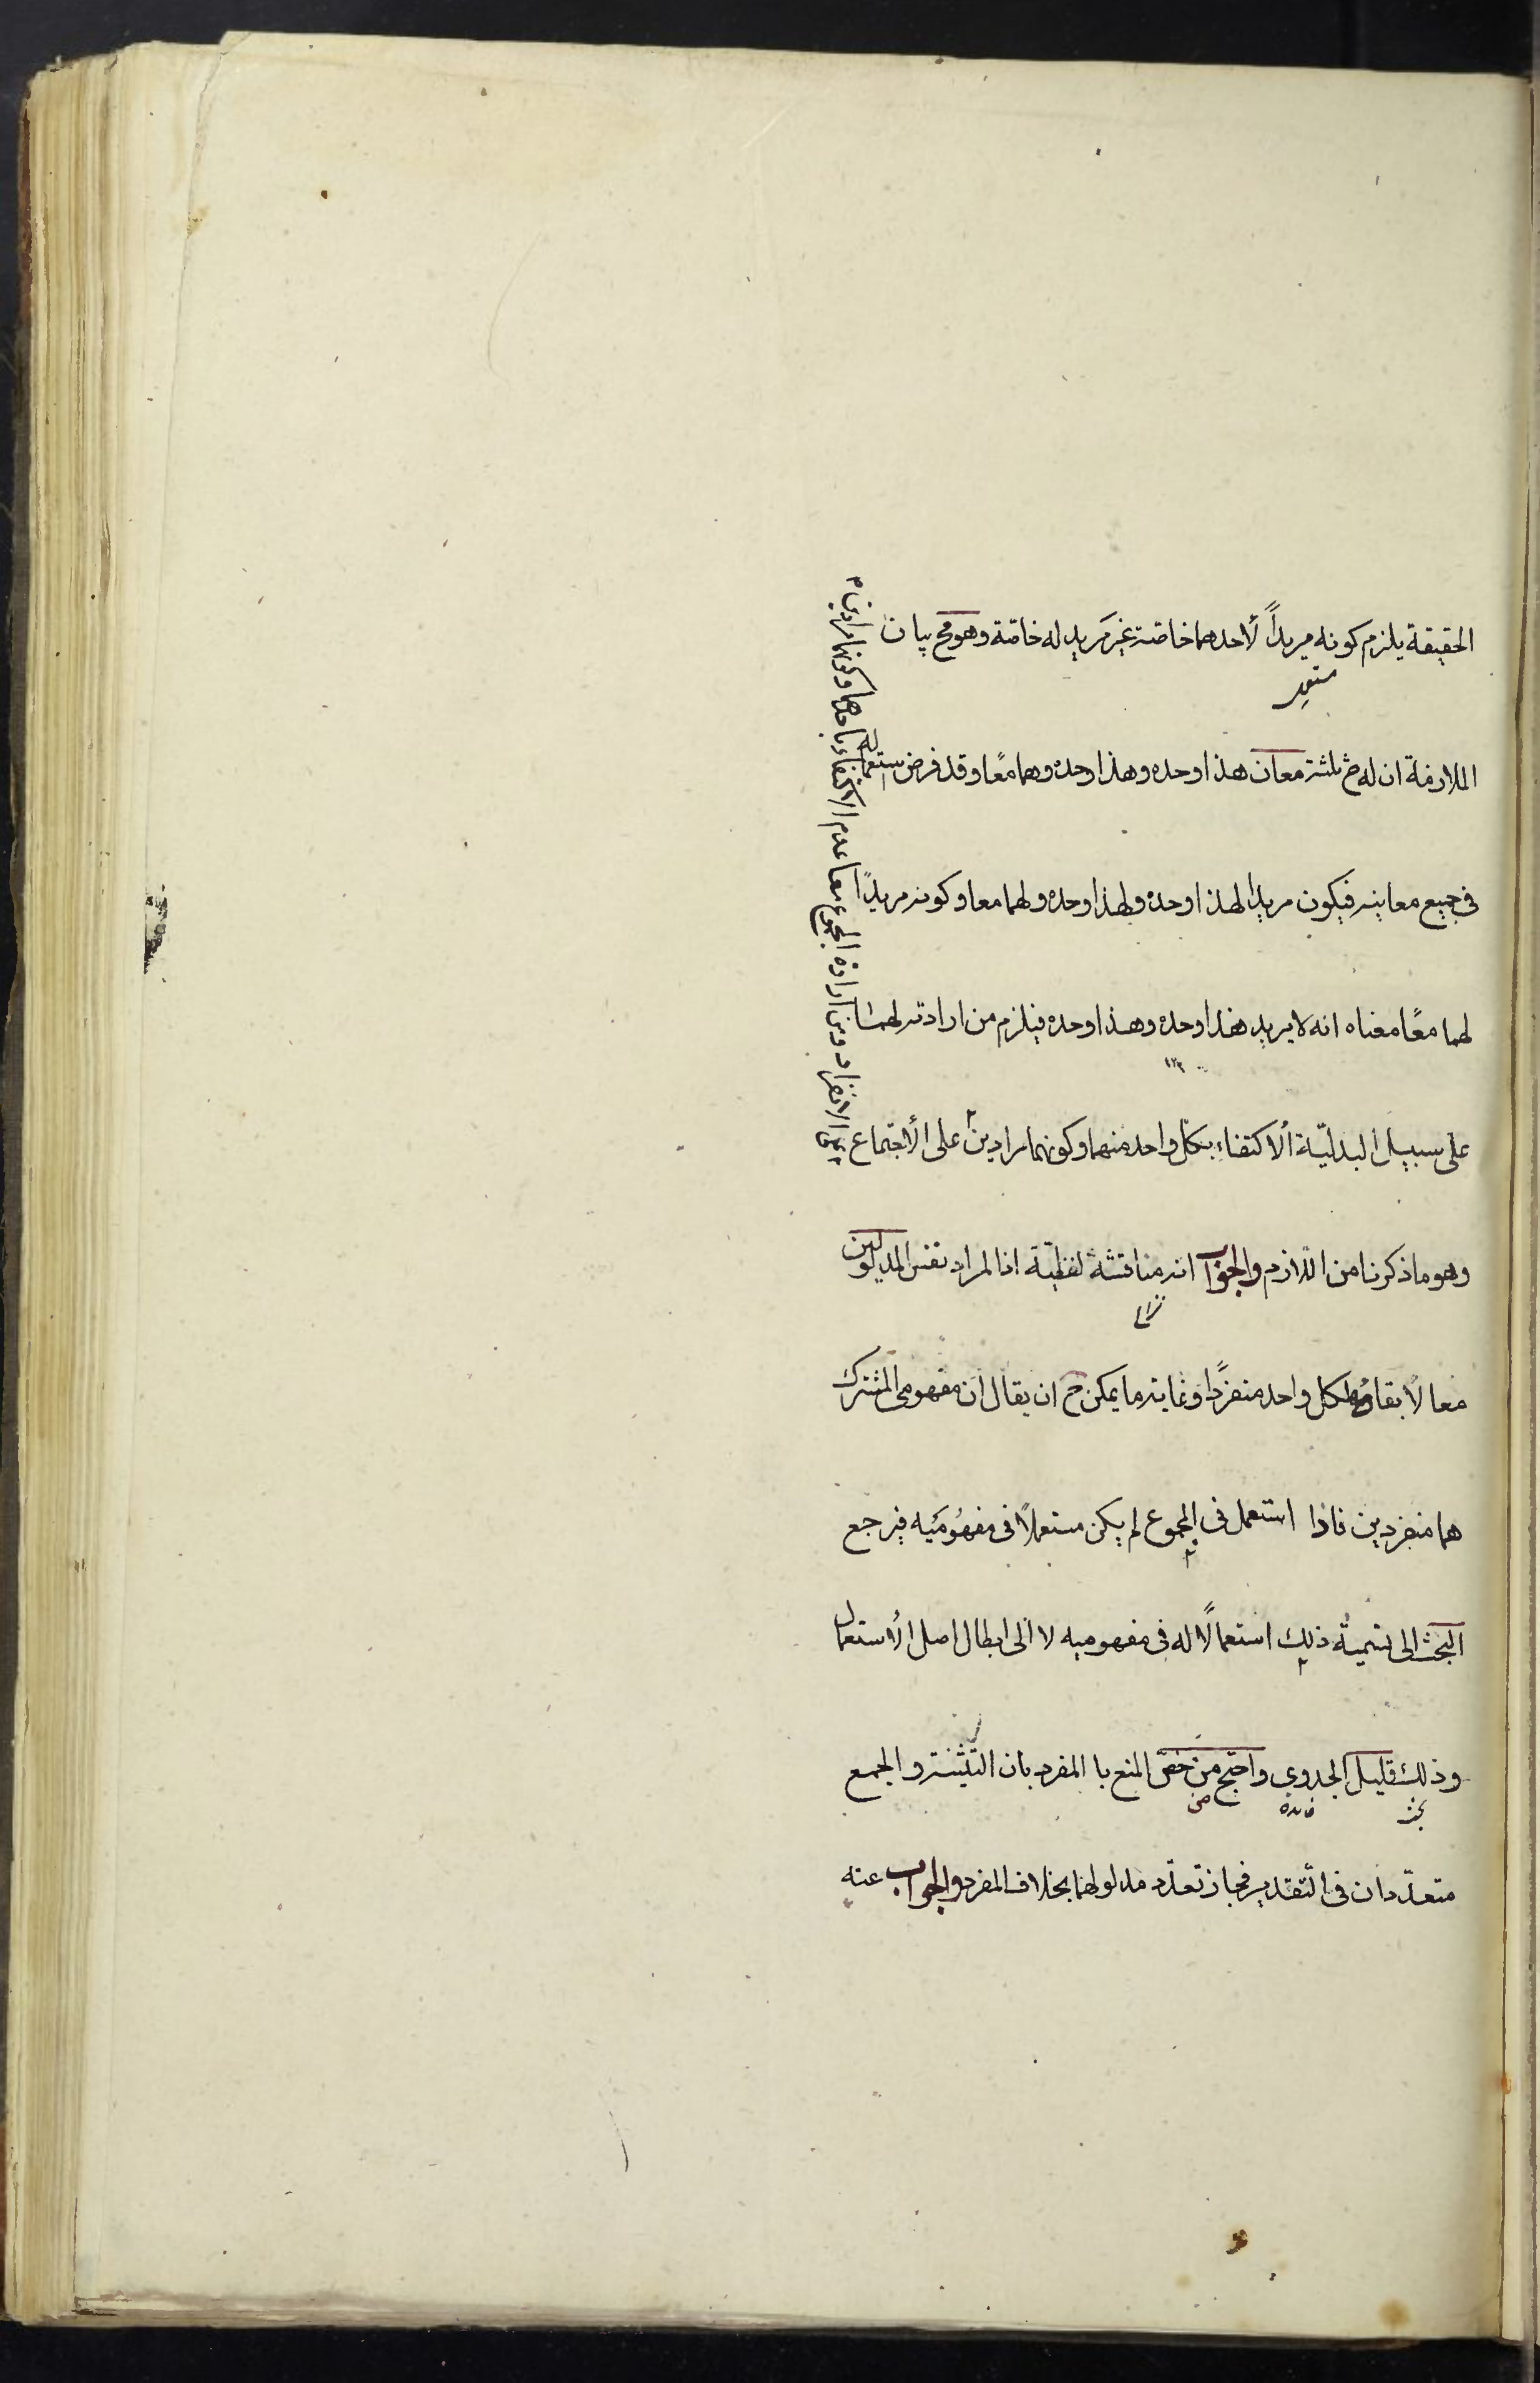 الحقيقة يلزم كونه مريداً لأحدهما خاصة غير مريد له خاصة وهو مح بيان
الملازمة ان له ح ثلثة معان هذا وحده وهذا وحده وهما معًا وقد فرض استعماله
فى جميع معانيه فيكون مريدا لهذا وحده ولهذا وحده ولهما معا وكونه مريدًا
لهما معًا معناه انه لا يريد هذا وحده وهذا وحده فيلزم من ارادته لهما
على سبيل البدليّة ألاكتفاء بكل واحد منهما وكونهما مرادين على الأجتماع
وهو ما ذكرنا من اللازم والجواب انه مناقشة لفظيّة اذا لمراد نفس المدلولين
نزاع
معا لا بقاؤه لكل واحد منفردًا وغاية ما يمكن ح ان يقال ان مفهومى المشترك
هما منفردين فاذا استعمل فى المجموع لم يكن مستعملًا فى مفهوميه فيرجع
البحث الى تسمية ذلك استعمالًا له فى مفهوميه لا الى ابطال اصل الأستعمال
وذلك قليل الجدوى واحتج من خص المنع با المفرد بان التثنية والجمع
بحث فائده
متعدّدان فى التقدير فجاز تعدّد مدلولهما بخلاف المفرد والجواب عنه
الانفراد ومن ارادة المجموع معا عدم الاكتفاء باحدهما وكونهما مرادين